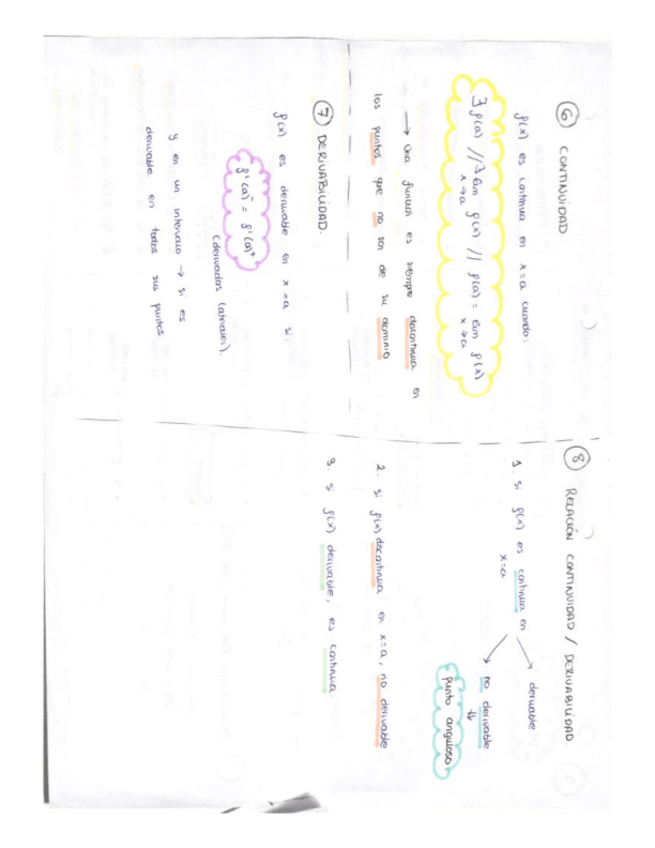 ⑥ CONTINUIDAD.
f(x) es continua en x=a cuando:
∃ f(a) // ∃ lim f(x) // f(a) = lim f(x)
x→a x→a
→ Una función es siempre discontinua en
los puntos que no son de su dominio
⑦ DERIVABILIDAD.
f(x) es derivable en x=a si:
f'(a)⁻ = f'(a)⁺
(derivadas laterales).
y en un intervalo → si es
derivable en todos sus puntos
⑧ RELACIÓN CONTINUIDAD / DERIVABILIDAD.
1. Si f(x) es continua en
x=a
→ derivable
→ no derivable
⇓
punto anguloso
2. Si f(x) discontinua en x=a, no derivable
3. Si f(x) derivable, es continua.